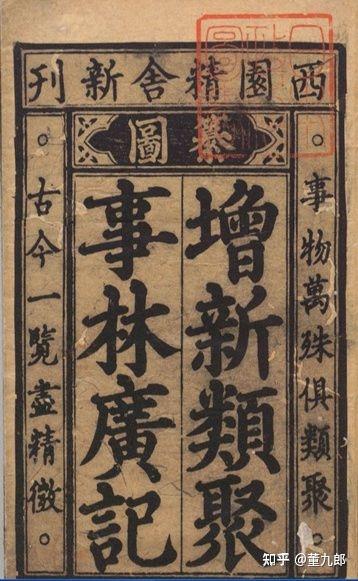 西園精舍新刊
纂圖
事物萬殊俱類聚。
增新類聚
事林廣記
古今一覽盡精微。
知乎 @董九郎